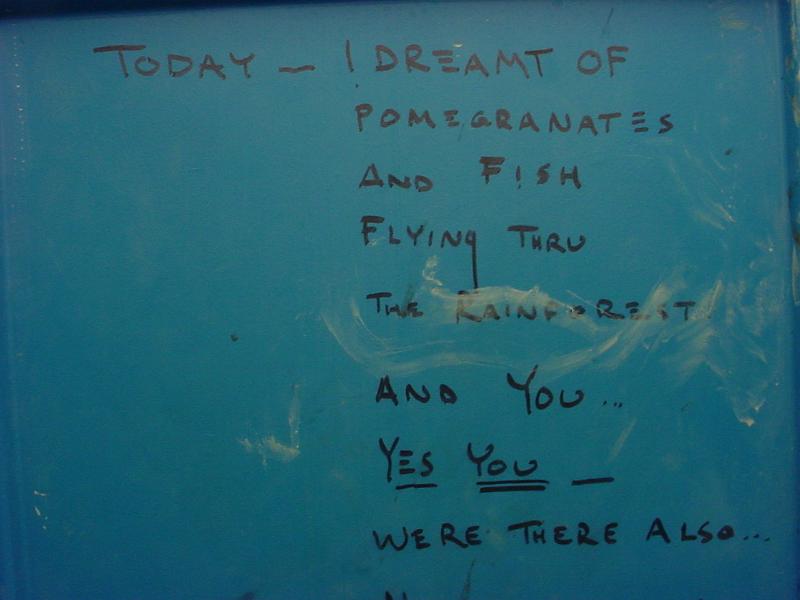 TODAY — I DREAMT OF
POMEGRANATES
AND FISH
FLYING THRU
THE RAINFOREST
AND YOU...
YES YOU —
WERE THERE ALSO...